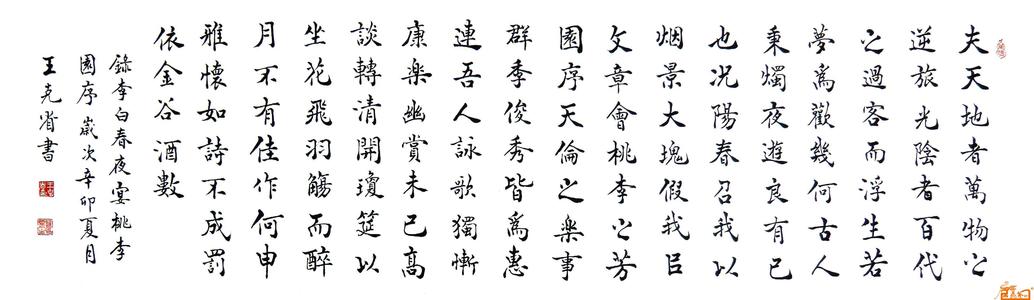 夫天地者萬物之
逆旅光陰者百代
之過客而浮生若
夢爲歡幾何古人
秉燭夜遊良有已
也況陽春召我以
烟景大塊假我㠯
文章會桃李之芳
園序天倫之楽事
群季俊秀皆爲惠
連吾人詠歌獨慚
康楽幽賞未已高
談轉清開瓊筵以
坐花飛羽觴而醉
月不有佳作何申
雅懷如詩不成罰
依金谷酒數
錄李白春夜宴桃李
園序歲次辛卯夏月
王克省書